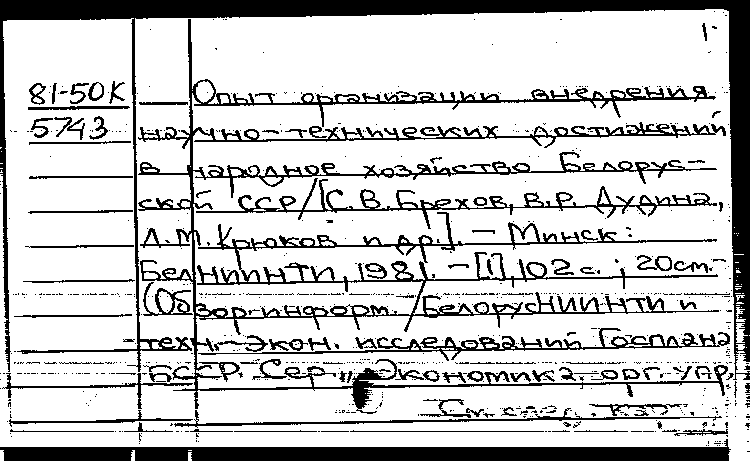 1.
81-50К
5743
Опыт организации внедрения
научно-технических достижений
в народное хозяйство Белорус-
ской ССР/[С.В.Брехов, В.Р. Дудина,
Л.М.Крюков и др.]. - Минск:
БелНИИНТИ, 1981. - [1], 102 с. ; 20см.-
(Обзор.информ./БелорусНИИНТИ и
техн.-экон. исследований Госплана
БССР. Сер. „Экономика, орг. упр.
См. след. карт.